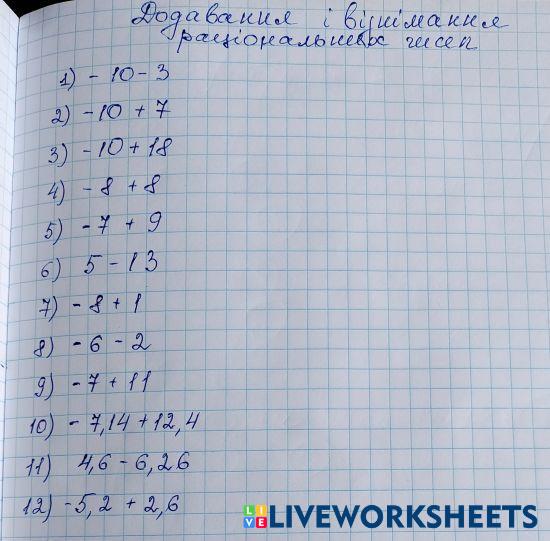 Додавання і віднімання
раціональних чисел
1) -10-3
2) -10+7
3) -10+18
4) -8+8
5) -7+9
6) 5-13
7) -8+1
8) -6-2
9) -7+11
10) -7,14+12,4
11) 4,6-6,26
12) -5,2+2,6
LIVEWORKSHEETS